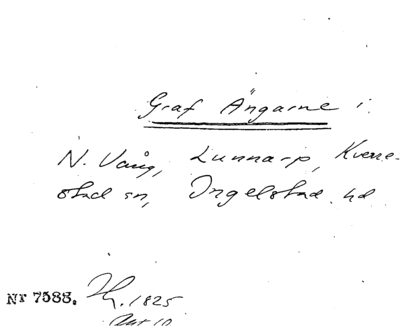 Graf Ängarne i
N. Vång, Lunnarp, Kverre-
stad sn, Ingelstad hd
Nr 7588. 1825